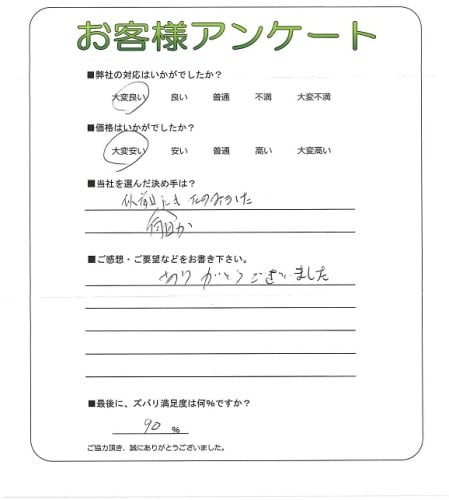 お客様アンケート
■弊社の対応はいかがでしたか?
大変良い 良い 普通 不満 大変不満
■価格はいかがでしたか?
大変安い 安い 普通 高い 大変高い
■当社を選んだ決め手は?
以前にも たのみました
何回か
■ご感想・ご要望などをお書き下さい。
ありがとうございました
■最後に、ズバリ満足度は何%ですか?
90 %
ご協力頂き、誠にありがとうございました。